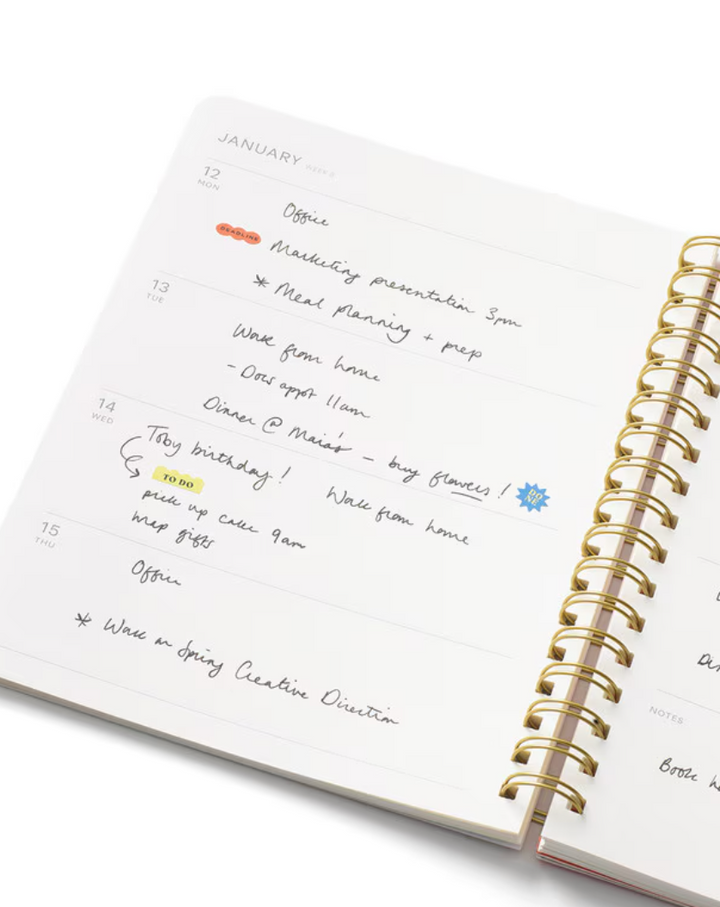 JANUARY
12
MON
Office
DEADLINE
Marketing presentation 3pm
* Meal planning + prep
13
TUE
Work from home
- Docs appt 11am
Dinner @ Maia's - buy flowers!
DO
NE
14
WED
Toby birthday!
Work from home
TO DO
pick up cake 9am
wrap gifts
15
THU
Office
* Work on Spring Creative Direction
NOTES
Book